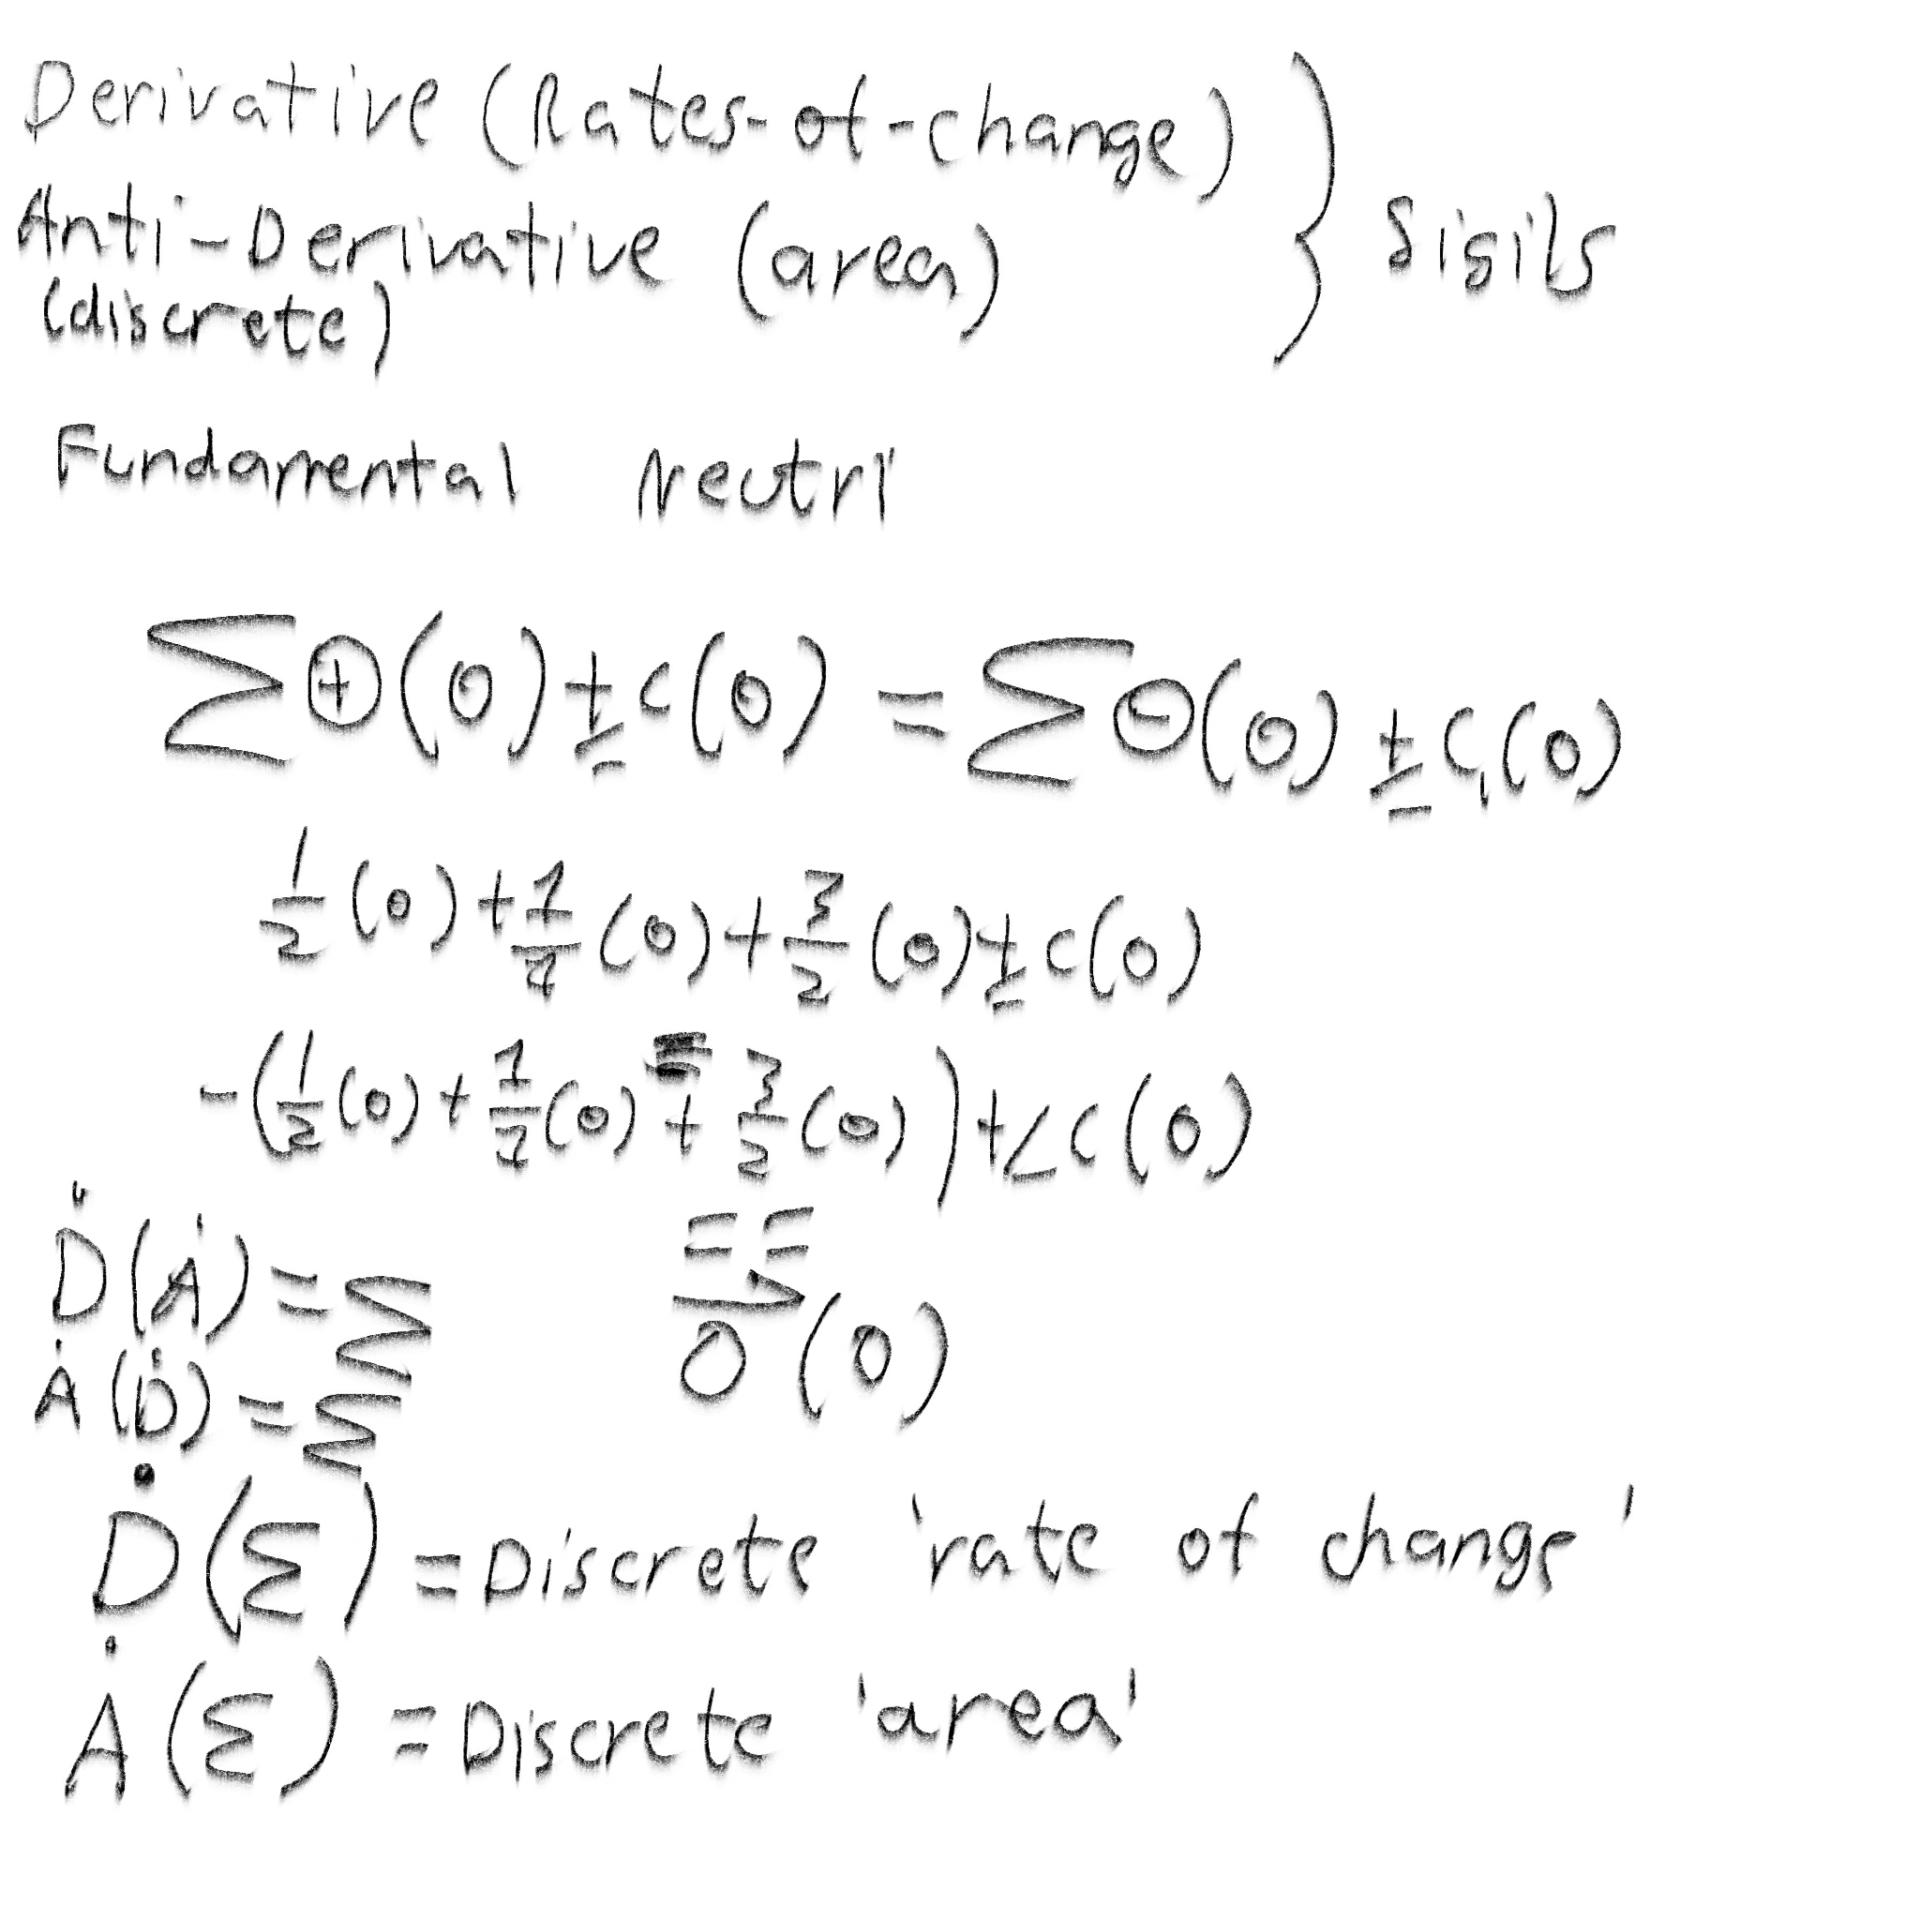 Derivative (Rates-of-change)
Anti-Derivative (area)
(discrete)
} Sigils
Fundamental Neutri
∑⊕(0)±c(0) = ∑⊖(0)±C₁(0)
1/2(0)+1/1(0)+3/2(0)±c(0)
-(1/2(0)+1/1(0)+3/2(0))+∠c(0)
Ḋ(Ȧ)=∑
Ȧ(Ḋ)=∑
0(0)
Ḋ(∑)=Discrete 'rate of change'
Ȧ(∑)=Discrete 'area'